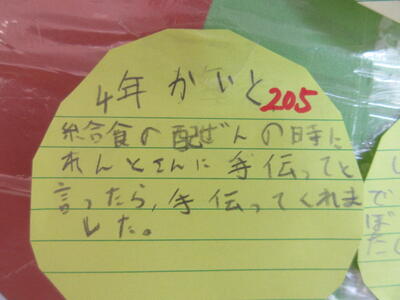 4年 かいと 205
給食の配ぜんの時に
れんとさんに手伝ってと
言ったら,手伝ってくれま
した。
で
ぼ